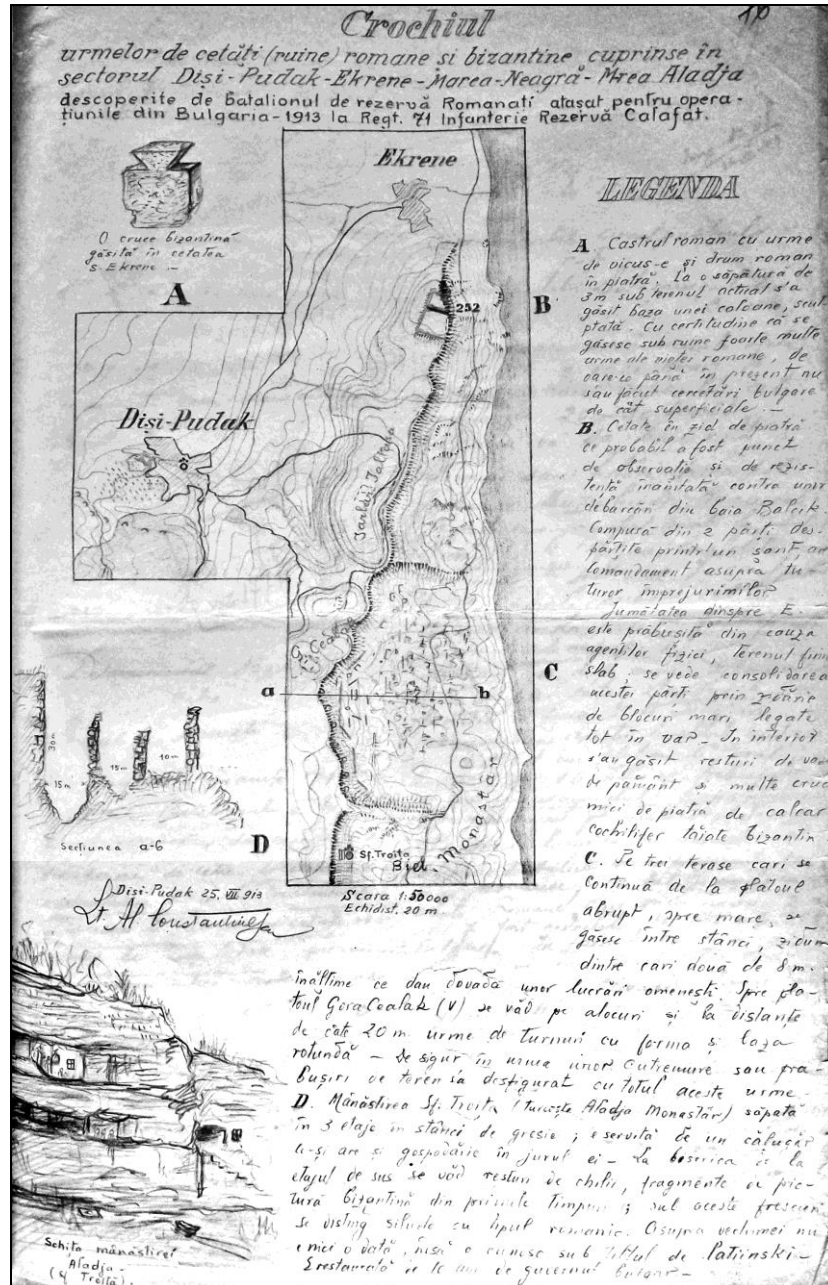 Crochiul
urmelor de cetăți (ruine) romane si bizantine cuprinse în
sectorul Diși-Pudak-Ekrene-Marea-Neagră-Mrea Aladja
descoperite de batalionul de rezervă Romanati atașat pentru opera-
țiunile din Bulgaria-1913 la Regt. 71 Infanterie Rezervă Calafat.
O cruce bizantină
găsită în cetatea
s. Ekrene -
A
Ekrene
252
B
Diși-Pudak
C
a
b
Sf. Troita
Monastâr
D
Scara 1:50000
Echidist. 20 m
30m
15m
15m
10m
Secțiunea a-b
Diși-Pudak 25. VII 913
Lt. Al.
Schița mânăstirei
Aladja.
(Sf Troită).
LEGENDA
A Castrul roman cu urme
de vicus-e și drum roman
în piatră. La o săpătură de
3m sub terenul actual s'a
găsit baza unei coloane, scul
ptată. Cu certitudine că se
găsesc sub ruine foarte multe
urme ale vieței romane, de
oare-ce până în prezent nu
sau făcut cercetări bulgare
de cât superficiale. -
B. Cetate în zid de piatră
ce probabil a fost punct
de observatie și de rezis-
tență înaintată contra unei
debarcări din baia Balcik
Compusă din 2 părți des-
părțite printr'un șanț, au
comandament asupra tu-
turor împrejurimilor
Jumătatea dinspre E.
este prăbușită din cauza
agentilor fizici, terenul fiind
slab; se vede consolidarea
acestei părți prin
de blocuri mari, legate
tot în var - In interior
s'au găsit resturi de vase
de pământ si multe cruci
mici de piatră de calcar
cochilifer tăiate bizantin
C. Pe trei terase cari se
continuă de la platoul
abrupt, spre mare, se
găsesc între stânci, ziduri
dintre cari două de 8 m.
înălțime ce dau dovada unor lucrări omenești. Spre pla-
toul Gora Cealak (V) se văd pe alocuri și la distanțe
de câte 20 m. urme de turnuri cu forma și baza
rotundă - De sigur în urma unor cutremure sau pra-
bușiri de teren s'a desfigurat cu totul aceste urme.
D. Mânăstirea Sf. Troita (turcește Aladja Monastâr) săpată
în 3 etaje în stânci de gresie; e servită de un călugăr
ce-și are și gospodărie în jurul ei - La biserica de la
etajul de sus se văd resturi de chilii, fragmente de pic-
tură bizantină din timpuri; sub aceste frescuri
se disting siluete cu tipul romanic. Asupra vechimei nu
e nici o dată, însă e cunosc sub titlul de
E restaurată de guvernul bulgar -